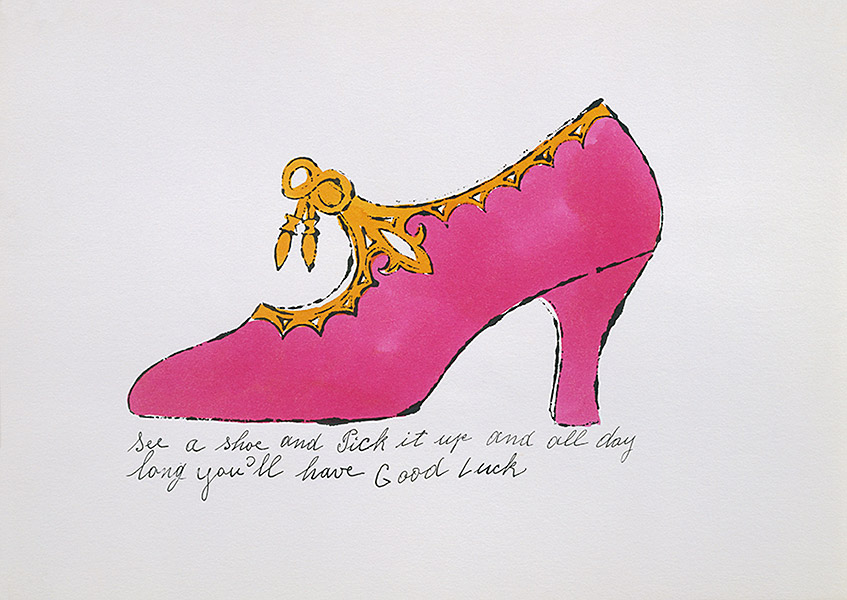 See a shoe and Pick it up and all day
long you'll have Good Luck